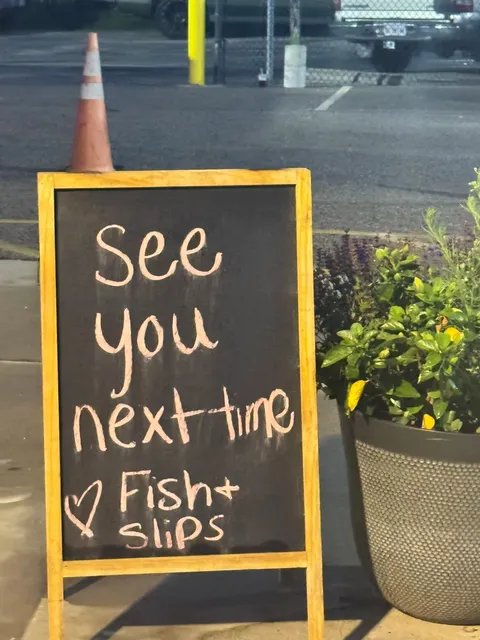 See
you
next time
♡ Fish+
slips